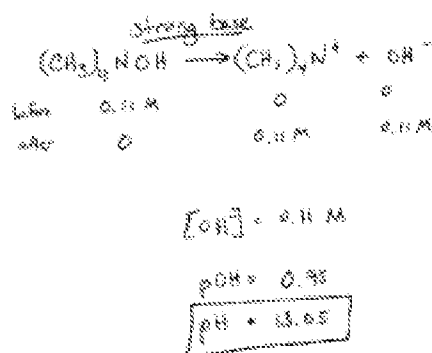 strong base
(CH₃)₄NOH → (CH₃)₄N⁺ + OH⁻
before 0.11 M 0 0
after 0 0.11 M 0.11 M
[OH⁻] = 0.11 M
pOH = 0.95
pH = 13.05